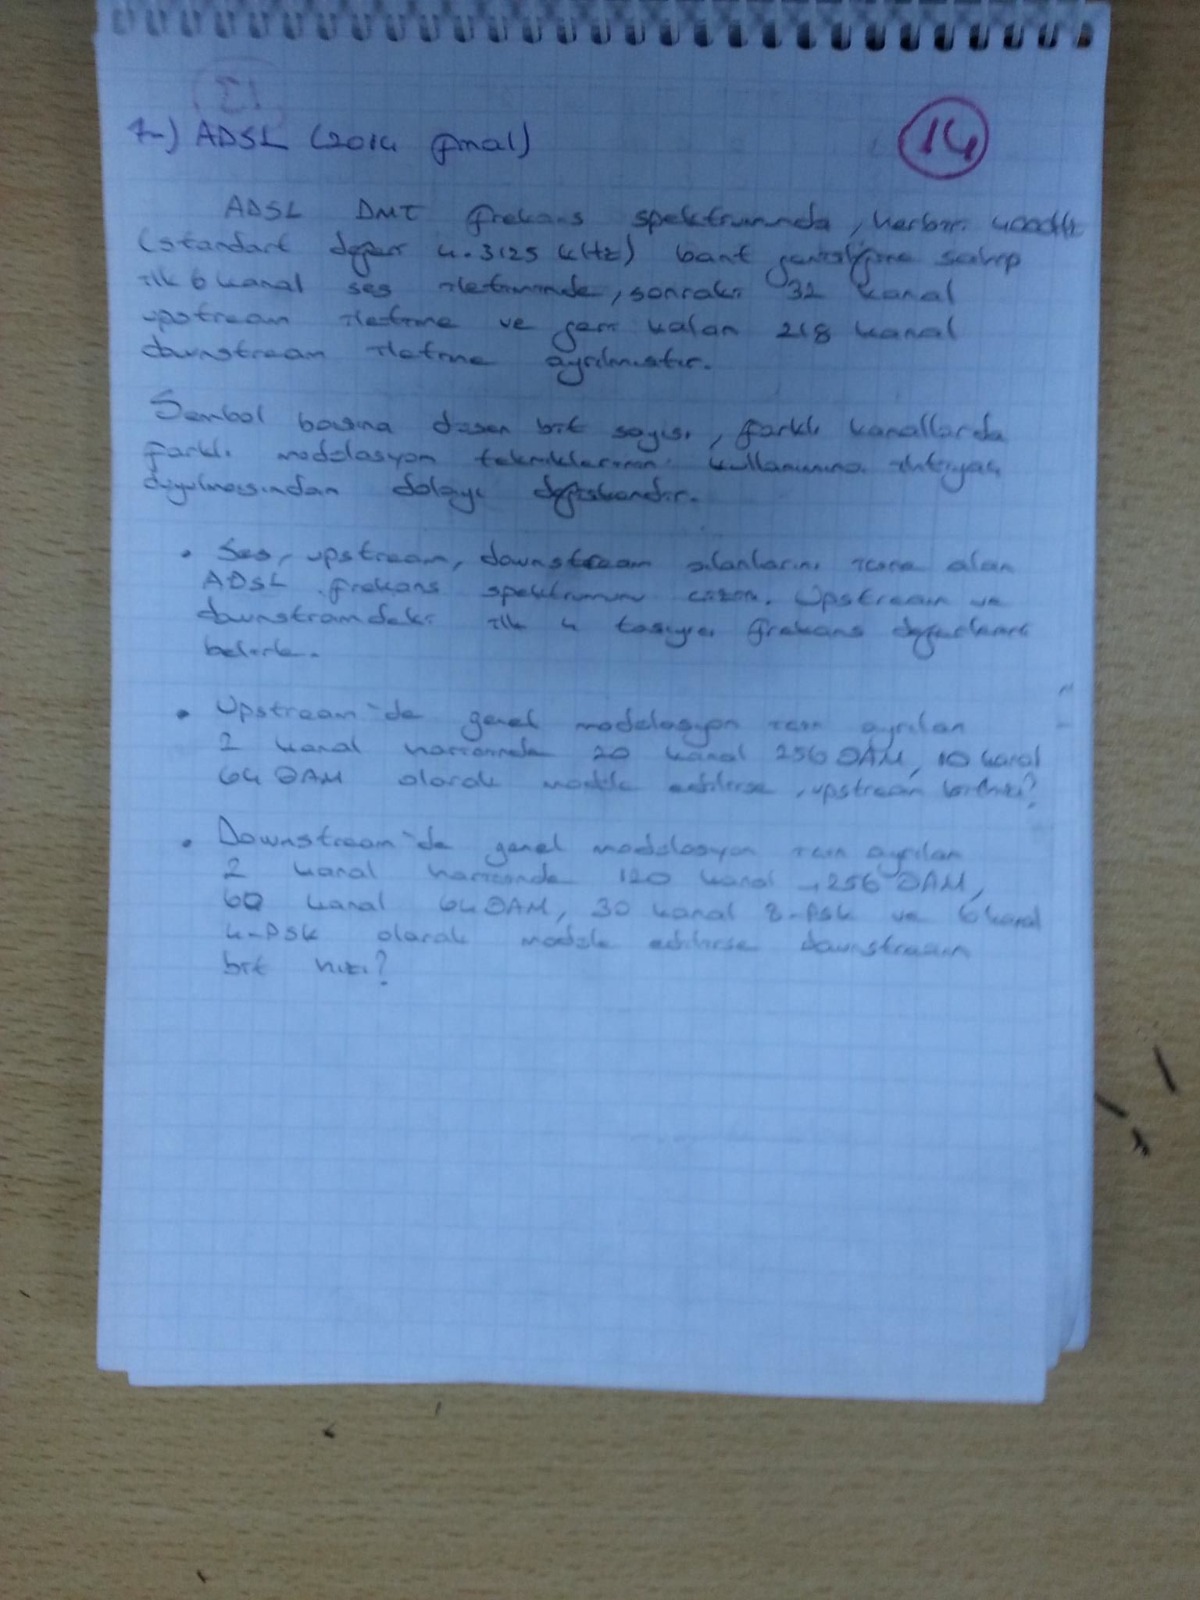 14
7-) ADSL (2014 final)
ADSL DMT frekans spektrumunda, herbiri 4000Hz
(standart değeri 4.3125 kHz) bant genişliğine sahip
ilk 6 kanal ses iletiminde, sonraki 32 kanal
upstream iletime ve geri kalan 218 kanal
downstream iletime ayrılmıştır.
Sembol başına düşen bit sayısı, farklı kanallarda
farklı modülasyon tekniklerinin kullanımına ihtiyaç
duyulmasından dolayı değişkendir.
• Ses, upstream, downstream alanlarını içine alan
ADSL frekans spektrumunu çizin. Upstream ve
downstramdeki ilk 4 taşıyıcı frekans değerlerini
belirle.
• Upstream'de genel modülasyon için ayrılan
2 kanal haricinde 20 kanal 256 QAM, 10 kanal
64 QAM olarak modüle edilirse, upstream bit hızı?
• Downstream'de genel modülasyon için ayrılan
2 kanal haricinde 120 kanal 256 QAM,
60 kanal 64 QAM, 30 kanal 8-PSK ve 6 kanal
4-PSK olarak modüle edilirse downstream
bit hızı?